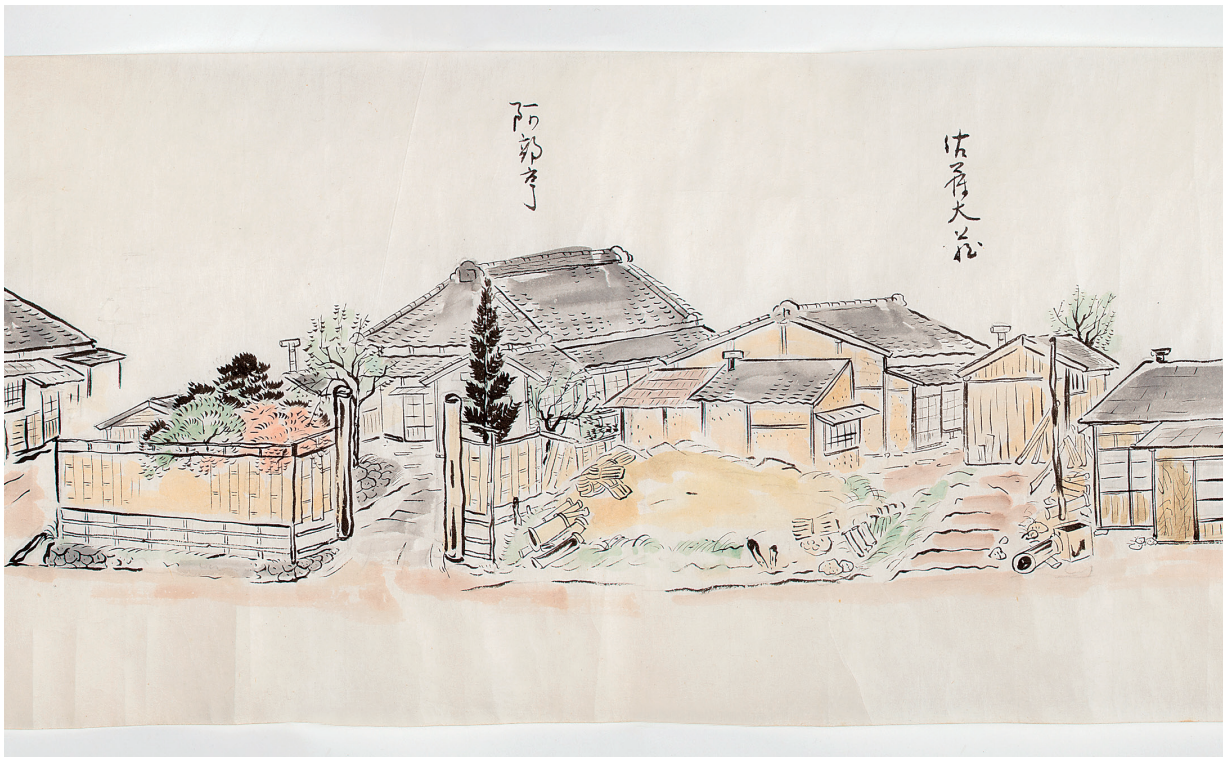 佐藤大蔵
阿部亨